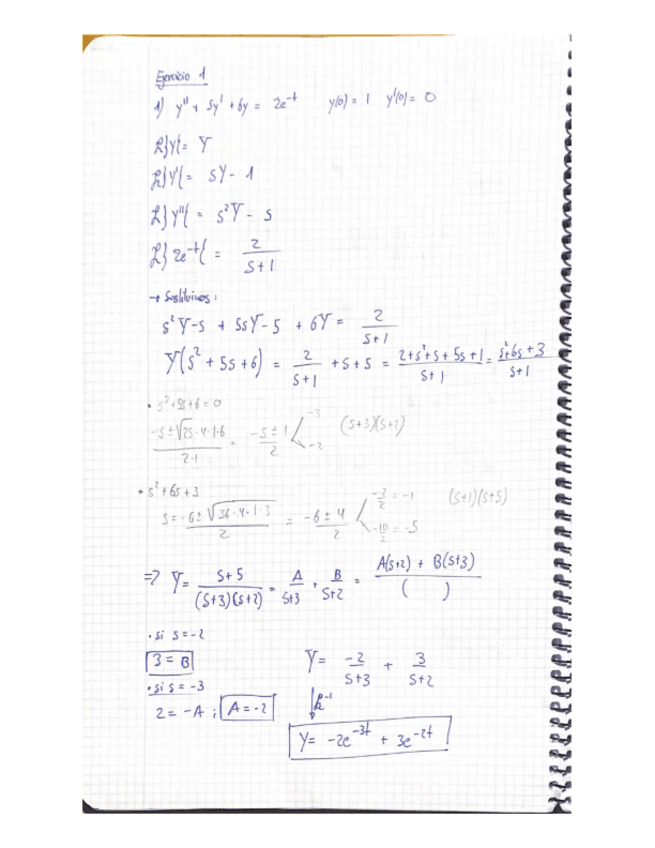 Ejercicio 1
1) y'' + 5y' + 6y = 2e^-t    y(0) = 1   y'(0) = 0
L}y{ = Y
L}y'{ = sY - 1
L}y''{ = s²Y - s
L}2e^-t{ = 2/(s+1)
→ Sustituimos:
s²Y - s + 5sY - 5 + 6Y = 2/(s+1)
Y(s² + 5s + 6) = 2/(s+1) + s + 5 = (2+s²+s+5s+1)/(s+1) = (s²+6s+3)/(s+1)
• s²+5s+6=0
(-5±√(25-4·1·6))/(2·1) = (-5±1)/2 < -3 -2   (s+3)(s+2)
• s²+6s+3
s = (-6±√(36-4·1·3))/2 = (-6±4)/2 < -2/2 = -1   -10/2 = -5   (s+1)(s+5)
=> Y = (s+5)/((s+3)(s+2)) = A/(s+3) + B/(s+2) = (A(s+2) + B(s+3))/(    )
• si s=-2
3 = B
Y = -2/(s+3) + 3/(s+2)
• si s = -3
2 = -A ; A = -2
↓ L^-1
Y = -2e^-3t + 3e^-2t